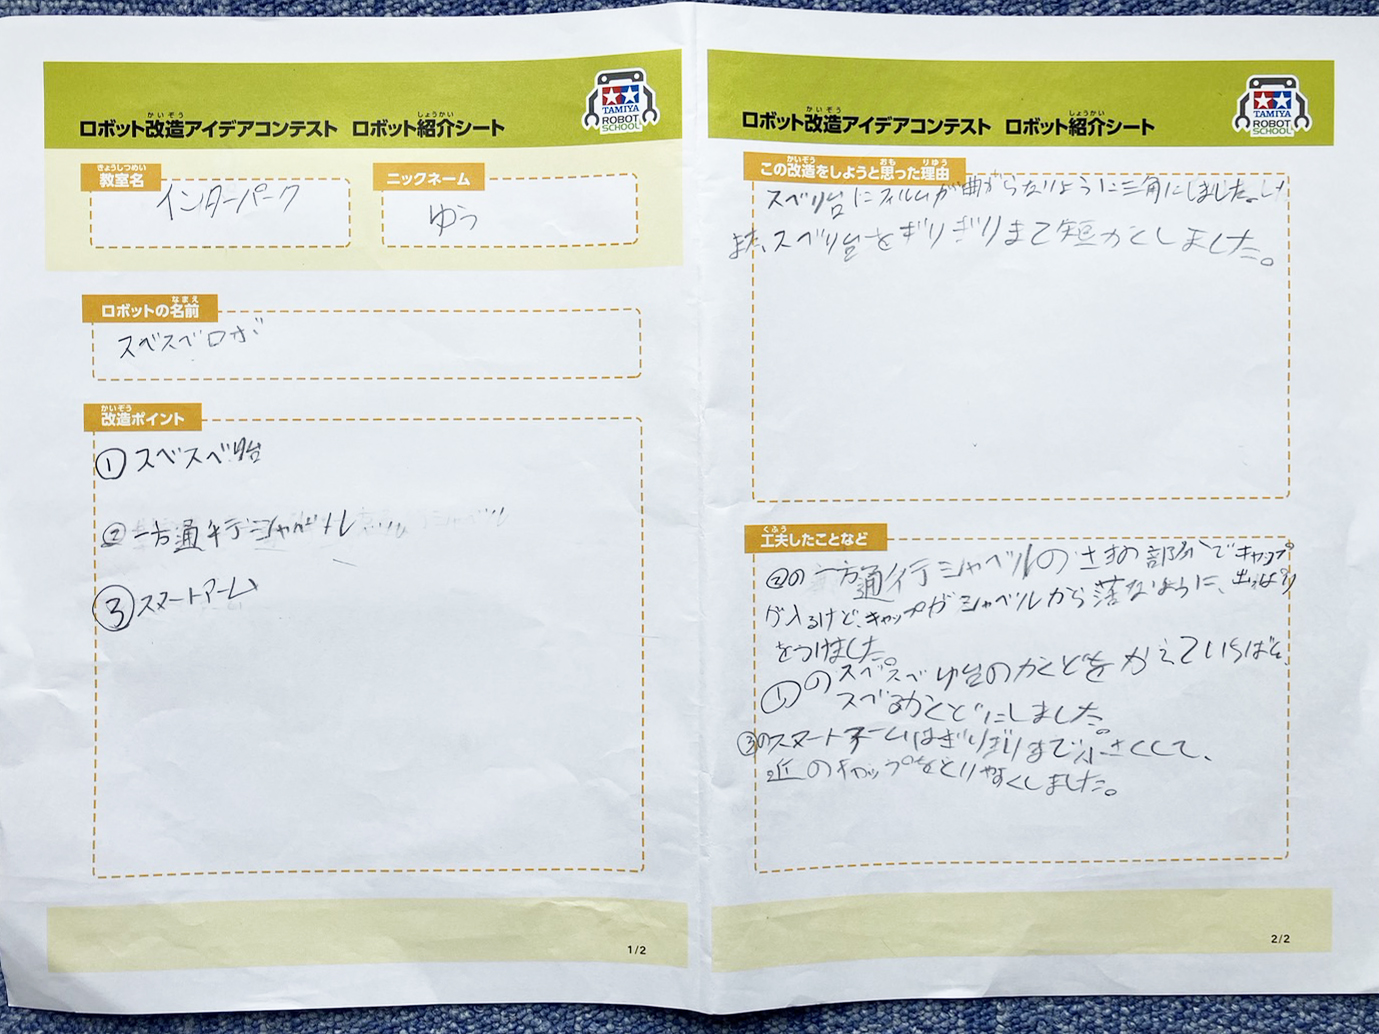 ロボット改造アイデアコンテスト ロボット紹介シート
TAMIYA
ROBOT
SCHOOL
教室名
インターパーク
ニックネーム
ゆう
ロボットの名前
スベスベロボ
改造ポイント
①スベスベり台
②一方通行シャベル
③スマートアーム
1/2
ロボット改造アイデアコンテスト ロボット紹介シート
TAMIYA
ROBOT
SCHOOL
この改造をしようと思った理由
スベり台にフィルムが曲がらないように三角にしました。
また、スベり台をぎりぎりまで短かくしました。
工夫したことなど
②の一方通行シャベルのさきの部分でキャップ
が入るけど、キャップがシャベルから落なように、出っぱり
をつけました。
①のスベスベり台のかくどをかえていちばん
スベるかくどにしました。
③のスマートアームはぎりぎりまで小さくして、
近のキャップをとりやすくしました。
2/2